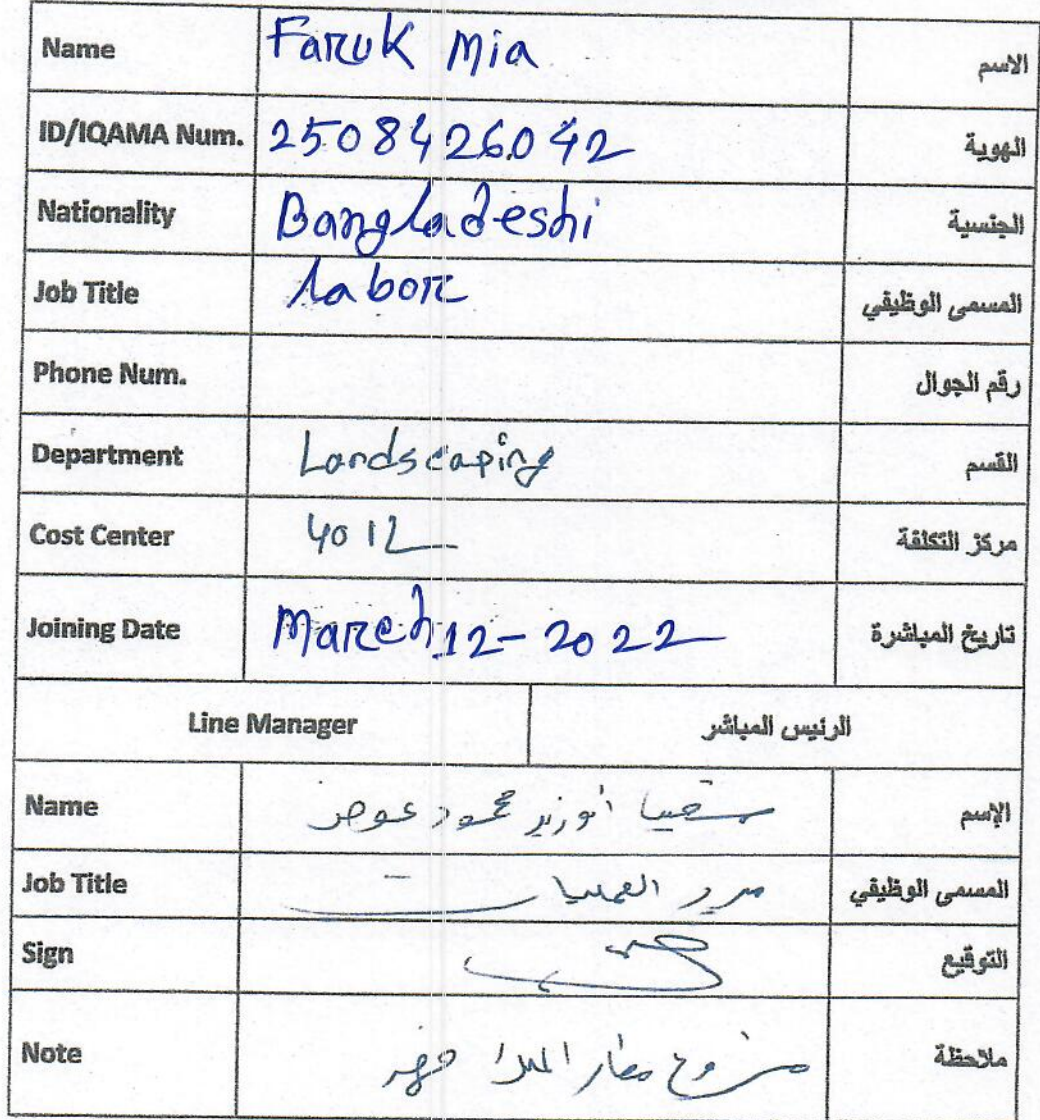 Name Faruk Mia الاسم
ID/IQAMA Num. 2508426042 الهوية
Nationality Bangladeshi الجنسية
Job Title labor المسمى الوظيفي
Phone Num. رقم الجوال
Department Landscaping القسم
Cost Center 4012 مركز التكلفة
Joining Date March 12-2022 تاريخ المباشرة
Line Manager الرئيس المباشر
Name محمود عوض الإسم
Job Title مدير العمليات المسمى الوظيفي
Sign التوقيع
Note مشروع مطار الملك فهد ملاحظة